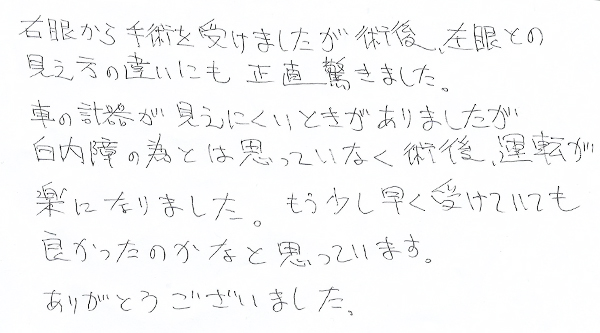 右眼から手術を受けましたが術後、左眼との
見え方の違いにも正直驚きました。
車の計器が見えにくいときがありましたが
白内障の為とは思っていなく術後、運転が
楽になりました。もう少し早く受けていても
良かったのかなと思っています。
ありがとうございました。